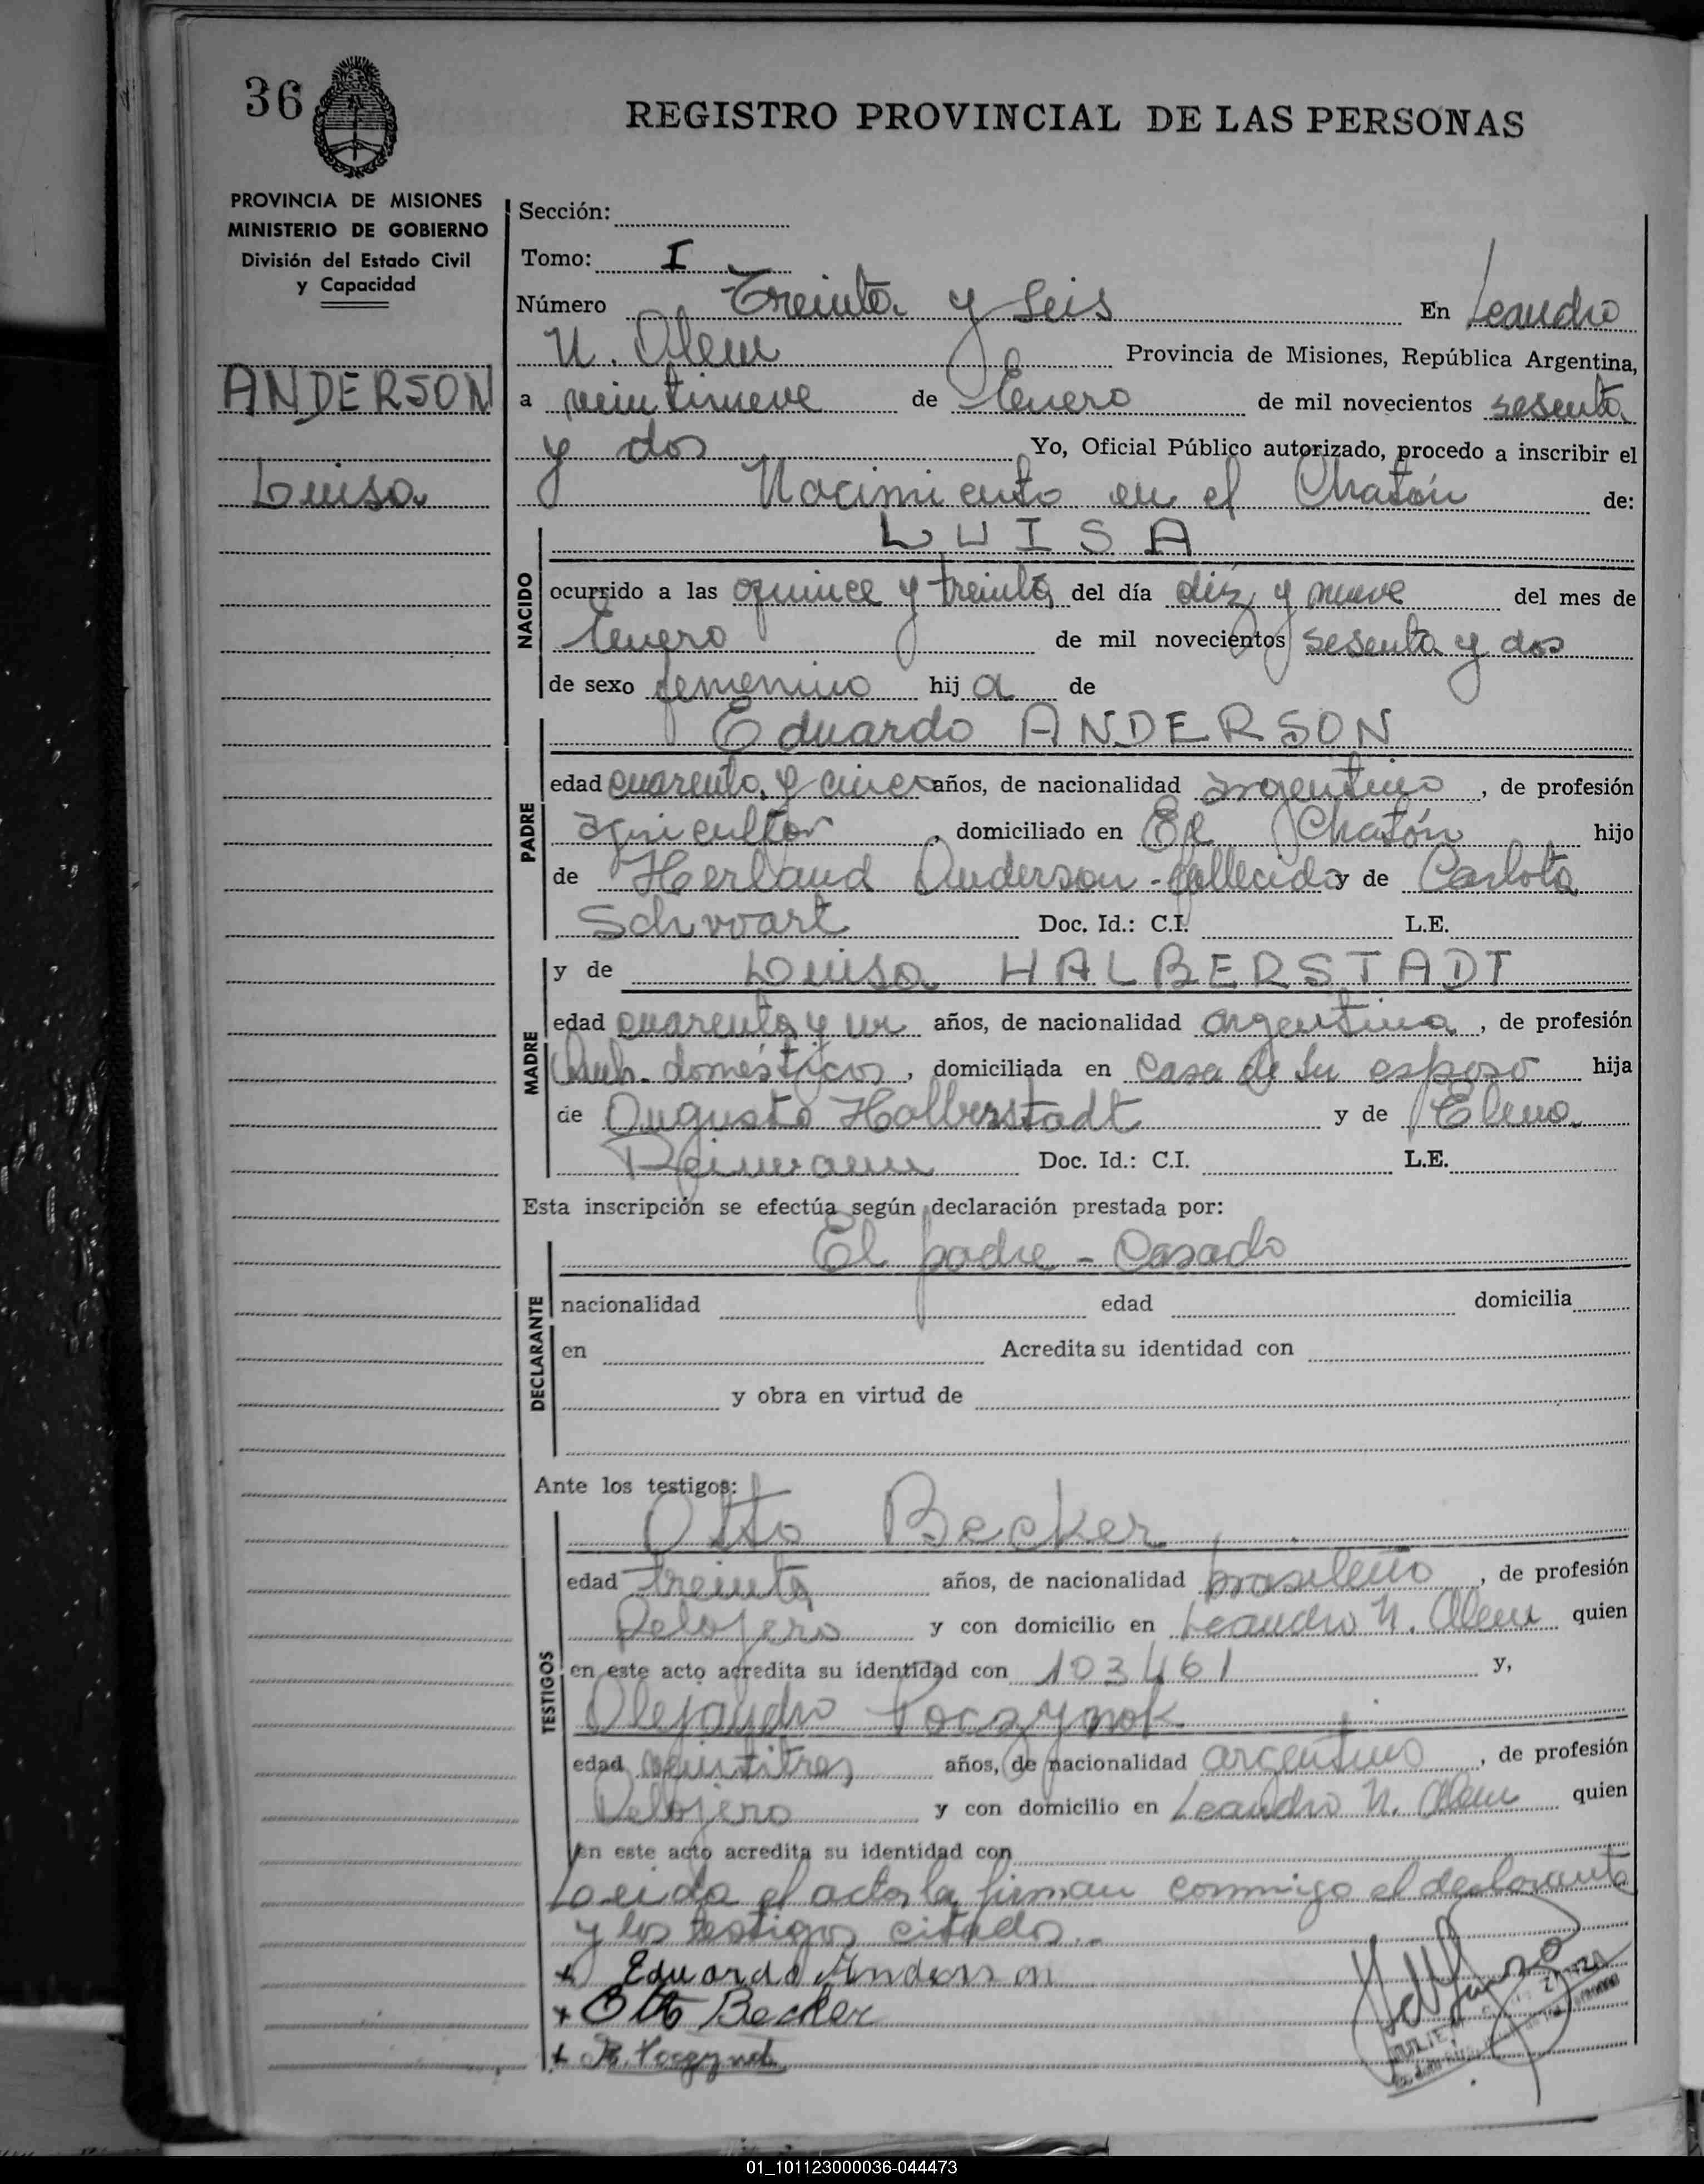 36
REGISTRO PROVINCIAL DE LAS PERSONAS
PROVINCIA DE MISIONES
MINISTERIO DE GOBIERNO
División del Estado Civil
y Capacidad
ANDERSON
Luisa
Sección:
Tomo: I
Número Treinta y Seis En Leandro
N. Alem Provincia de Misiones, República Argentina,
a veintinueve de Enero de mil novecientos sesenta
y dos Yo, Oficial Público autorizado, procedo a inscribir el
Nacimiento en el Chatón de:
NACIDO
LUISA
ocurrido a las quince y treinta del día diez y nueve del mes de
Enero de mil novecientos sesenta y dos
de sexo femenino hij a de
PADRE
Eduardo ANDERSON
edad cuarenta y cinco años, de nacionalidad argentino, de profesión
agricultor, domiciliado en El Chatón hijo
de Herland Anderson - fallecido y de Carlota
Schwart Doc. Id.: C.I. L.E.
MADRE
y de Luisa HALBERSTADT
edad cuarenta y un años, de nacionalidad argentina, de profesión
Queh. domésticos, domiciliada en casa de su esposo hija
de Augusto Halberstadt y de Elena
Reimann Doc. Id.: C.I. L.E.
Esta inscripción se efectúa según declaración prestada por:
DECLARANTE
El padre - Casado
nacionalidad edad domicilia
en Acredita su identidad con
y obra en virtud de
Ante los testigos:
TESTIGOS
Otto Becker
edad treinta años, de nacionalidad brasileño, de profesión
Relojero y con domicilio en Leandro N. Alem quien
en este acto acredita su identidad con 103461 y,
Alejandro Poczynok
edad veintitres años, de nacionalidad argentino, de profesión
Relojero y con domicilio en Leandro N. Alem quien
en este acto acredita su identidad con
Leida el acta la firman conmigo el declarante
y los testigos citados..
+ Eduardo Anderson
+ Otto Becker
+ Poczynok
01_101123000036-044473